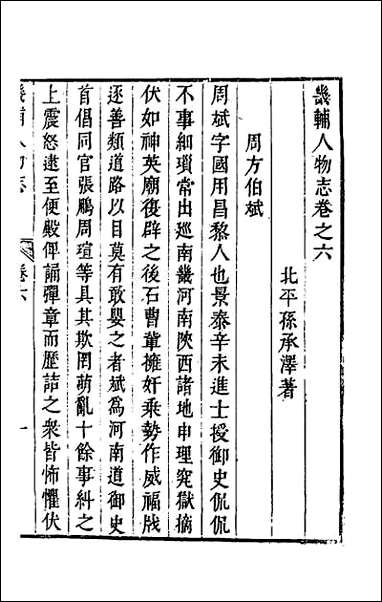 畿輔人物志卷之六
北平孫承澤著
周方伯斌
周斌字國用昌黎人也景泰辛未進士授御史侃侃
不事細瑣常出巡南畿河南陝西諸地申理究獄摘
伏如神英廟復辟之後石曹軰擁奸乘勢作威福戕
逐善類道路以目莫有敢嬰之者斌為河南道御史
首倡同官張鵬周瑄等具其欺罔萌亂十餘事糾之
上震怒逮至便殿俾誦彈章而歷詰之衆皆怖懼伏
畿輔人物志
卷六
一